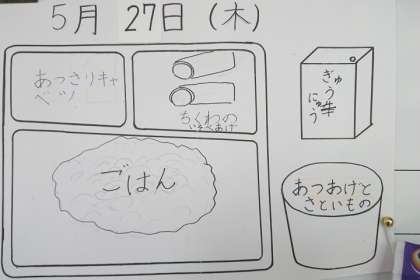 5月 27日(木)
あっさりキャ
ベツ
ちくわの
いそべあげ
ぎゅう
にゅう
ごはん
あつあげと
さといもの